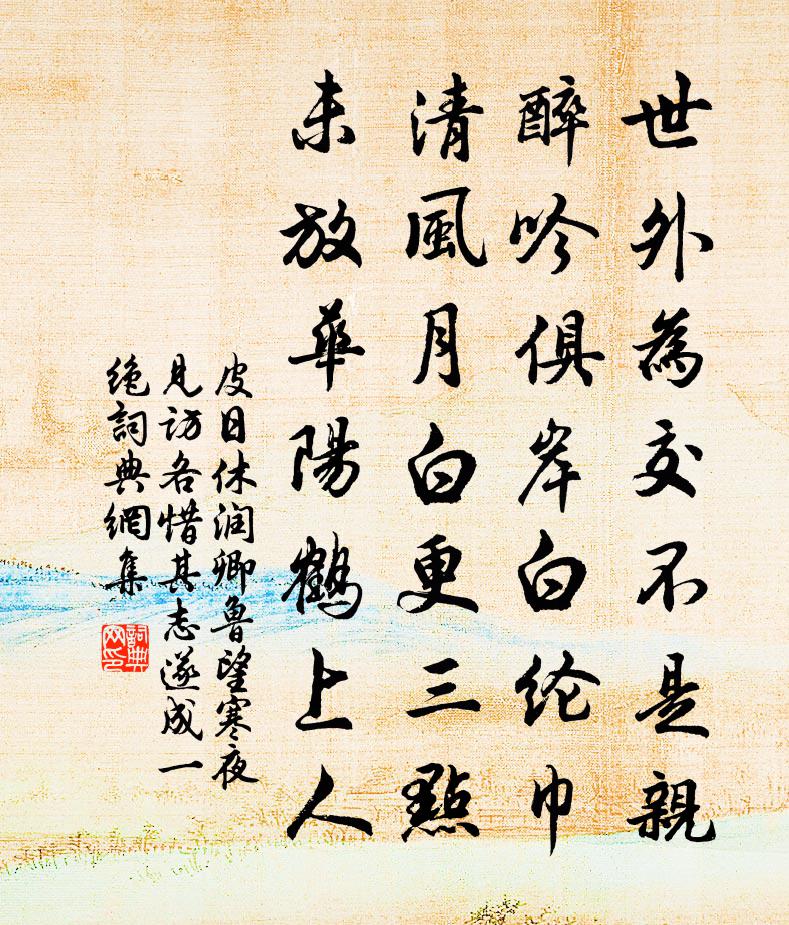 世外為交不是親
醉吟俱岸白纶巾
清風月白更三點
未放華陽鶴上人
皮日休润卿鲁望寒夜
見訪各惜其志遂成一
绝詞典網集
詞典网印